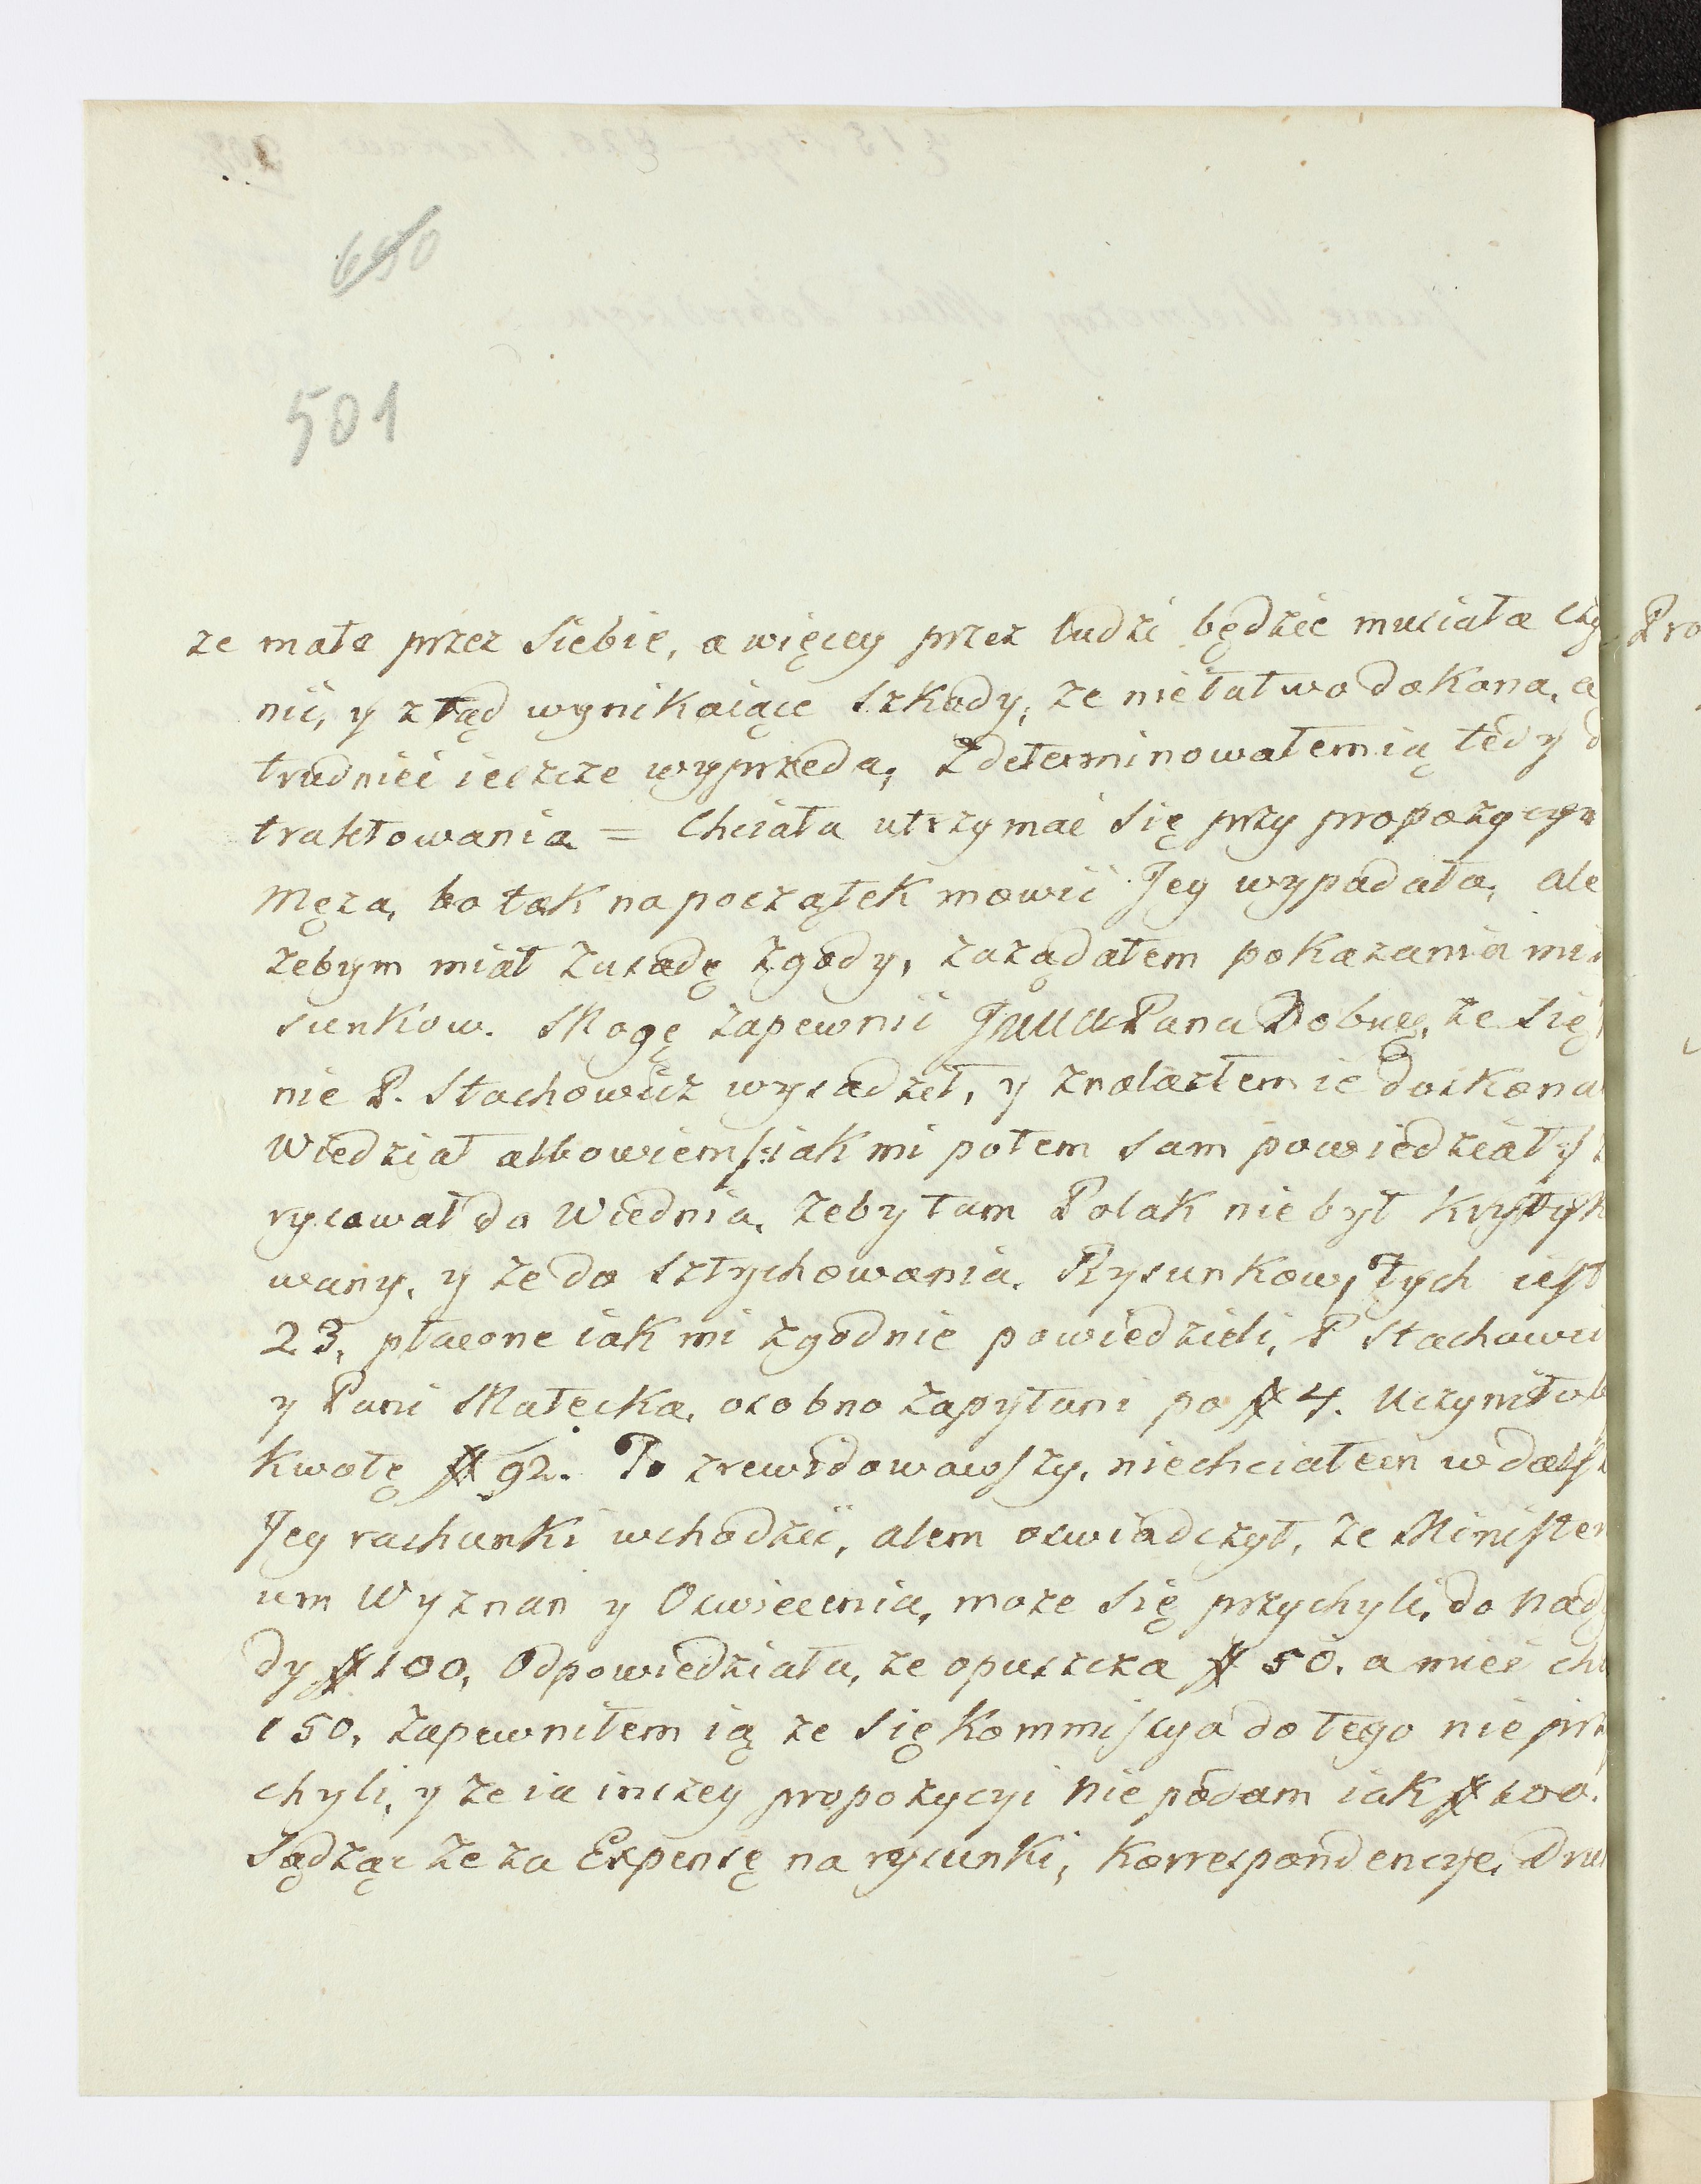 650
501
ze mało przez siebie, a więcey przez ludzi będzie musiała czy
nić, y ztąd wynikaiące szkody, że niełatwo dokona, a
trudniei ieszcze wyprzeda, zdeterminowałem ią tedy d
traktowania = Chciała utrzymać się przy propozycyi
Męża, bo tak na początek mowić Jey wypadało, ale
żebym miał zasadę zgody, zażądałem pokazania mi
sunkow. Mogę zapewnić JWWPana Dobrą, że się
nie P. Stachowicz wysadził, y znalazłem ie doskona
Wiedział albowiem /: iak mi potem sam powiedział :/
rysował do Wiednia, żeby tam Polak nie był krytyk
wany, y że do sztychowania. Rysunkow, Tych iest
23, płacone iak mi zgodnie powiedzieli, P Stachowi
y Pani Małecka, osobno zapytani po # 4. Uczyniłob
kwotę # 92. To zrewidowawszy, niechciałem w dalsz
Jey rachunki wchodzić, alem oswiadczył, że Minister
um Wyznań y Oswiecenia, może się przychyli, do nadg
dy # 100, Odpowiedziała, że opuszcza # 50. a mieć ch
150, Zapewniłem ią że się Kommissya do tego nie prz
chyli, y że ia inszey propozycyi nie podam iak # 100.
Sądząc że za Expensę na rysunki, Korrespondencye, Dru
Pro